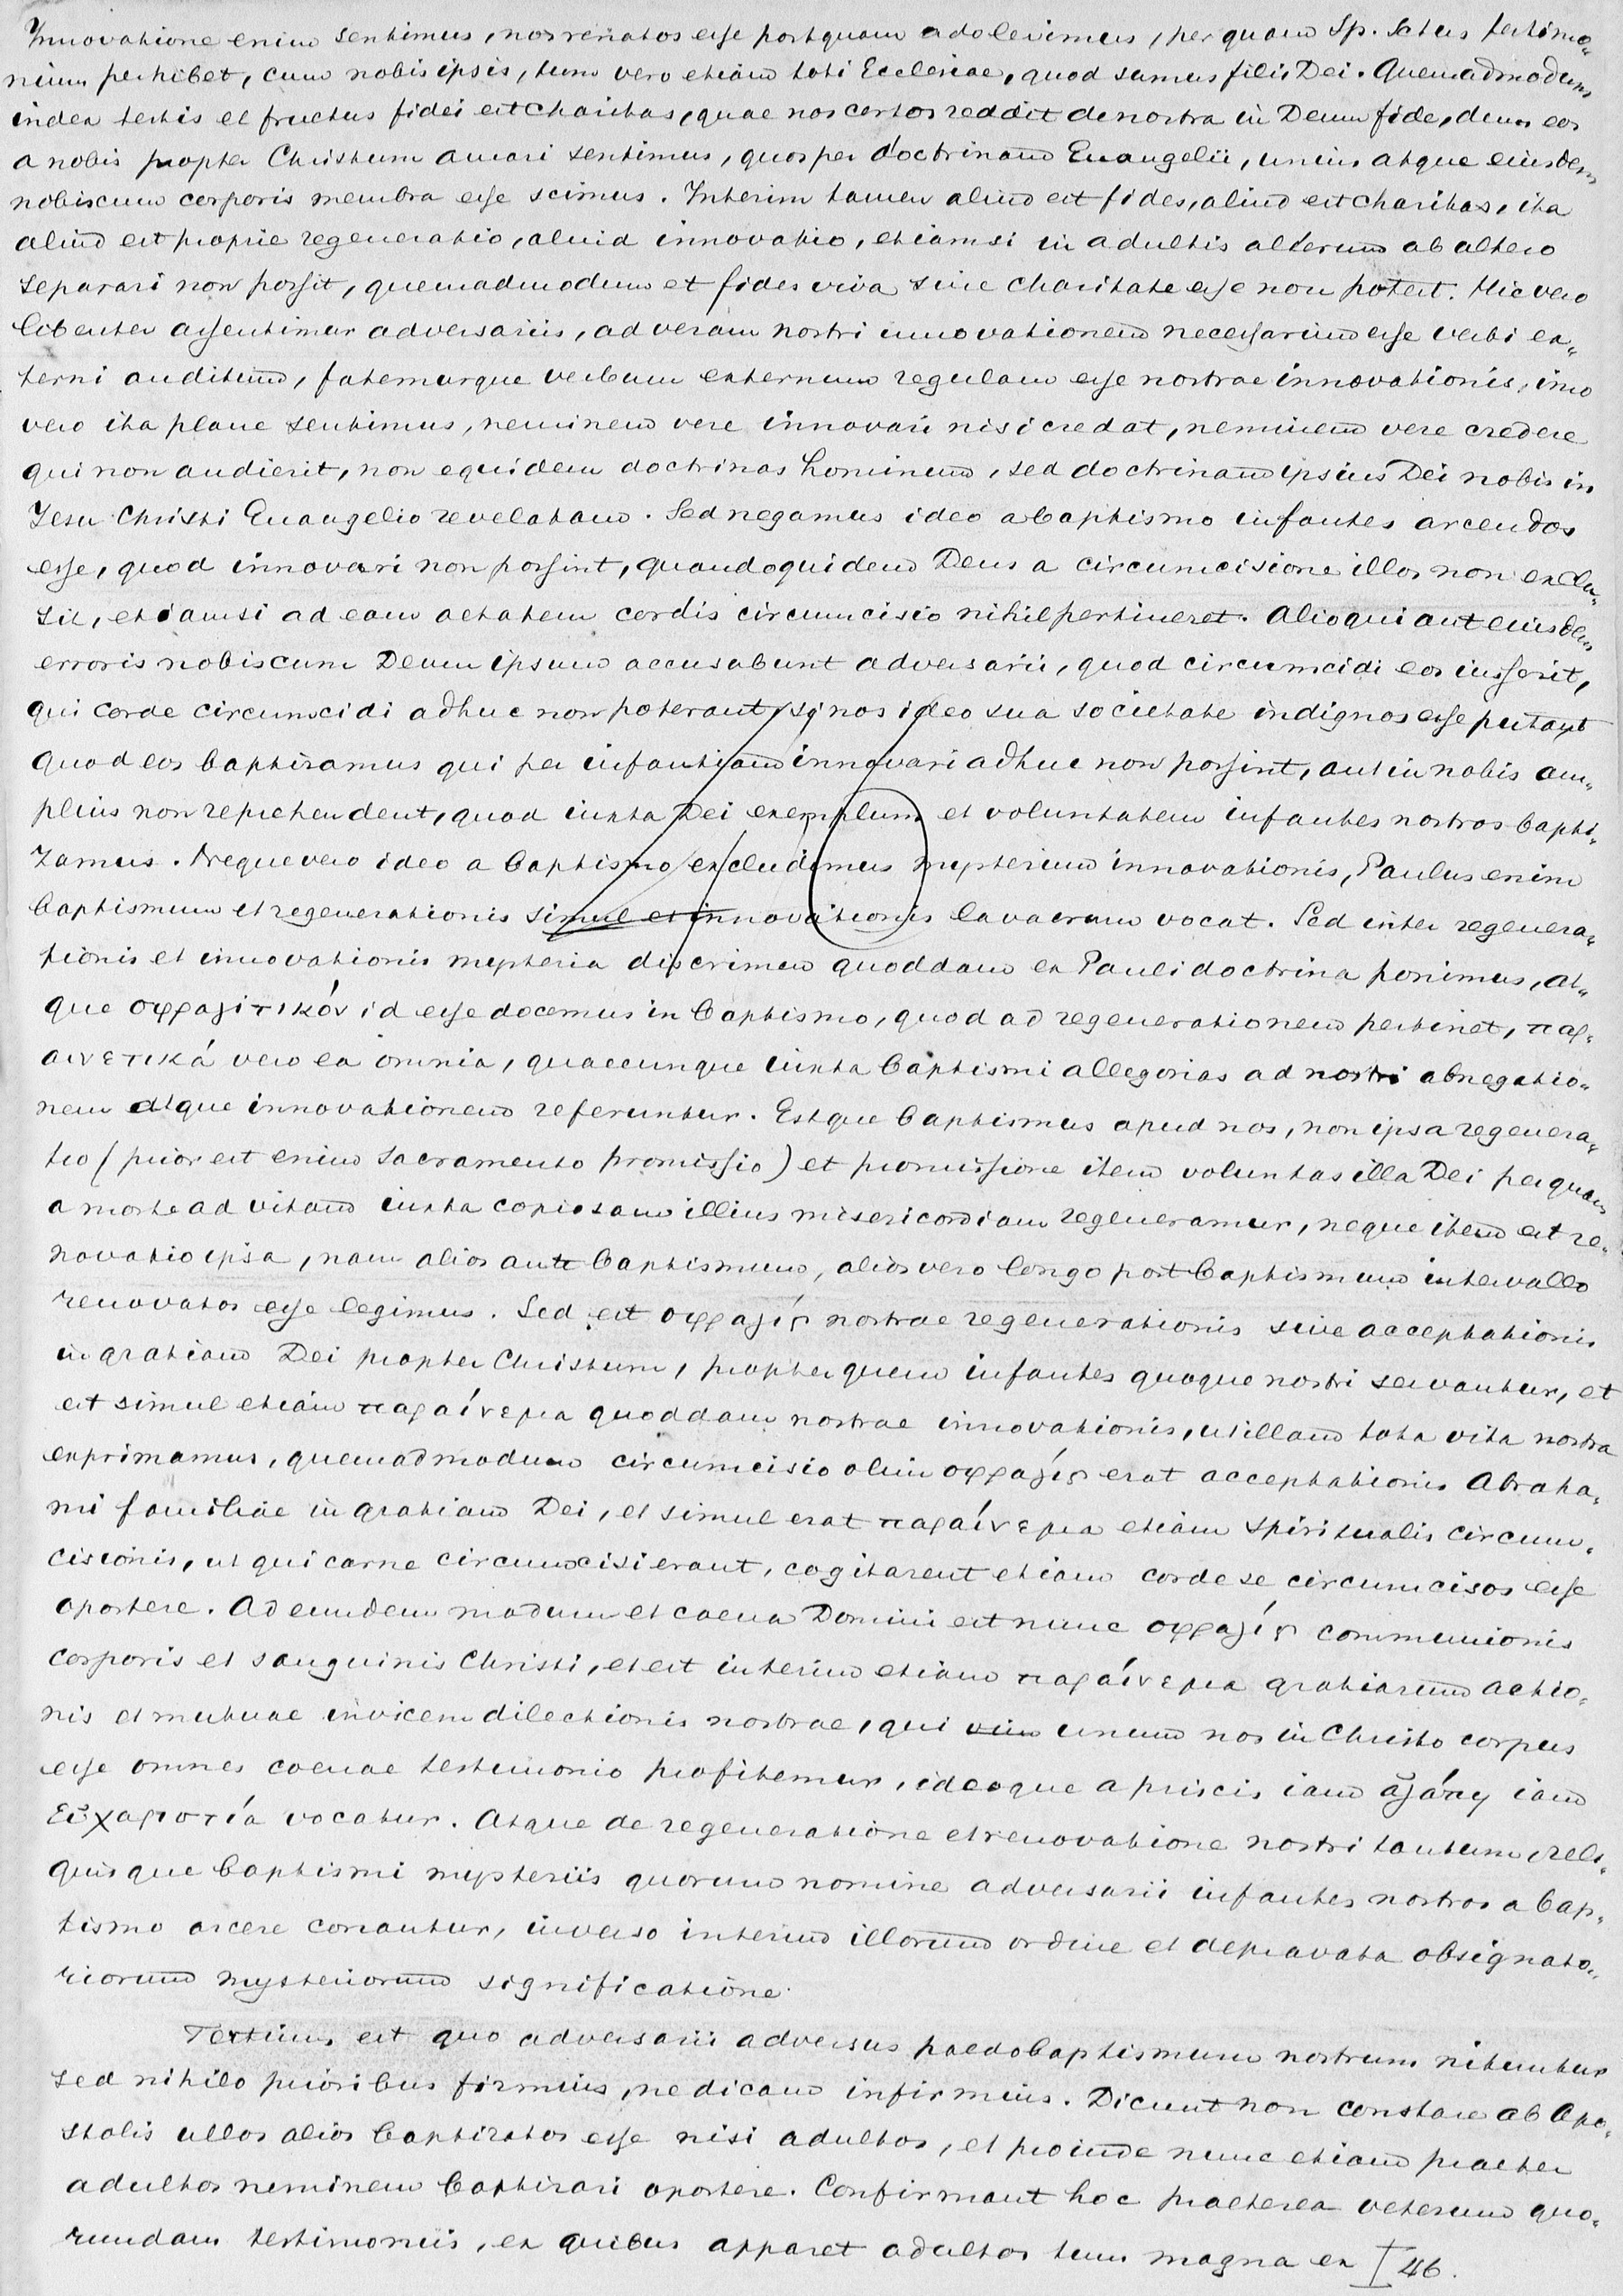 Innovatione enim sentimus, nos renatos esse postquam adolevimus, per quam Sp. Sctus testimo-
nium perhibet, cum nobis ipsis, tum vero etiam toti Ecclesiae, quod sumus filii Dei. Quemadmodum
index testis et fructus fidei est Charitas, quae nos certos reddit de nostra in Deum fide, dum eos
a nobis propter Christum amari sentimus, quos per doctrinam Euangelii, unius atque eiusdem
nobiscum corporis membra esse scimus. Interim tamen aliud est fides, aliud est charitas, ita
aliud est proprie regeneratio, aluid innovatio, etiamsi in adultis alterum ab altero
separari non possit, quemadmodum et fides viva sine charitate esse non potest. Hic vero
libenter assentimur adversariis, ad veram nostri innovationem necessarium esse verbi ex-
terni auditum, fatemurque verbum externum regulam esse nostrae innovationis, imo
vero ita plane sentimus, neminem vere innovari nisi credat, neminem vere credere
qui non audierit, non equidem doctrinas hominum, sed doctrinam ipsius Dei nobis in
Jesu Christi Euangelio revelatam. Sed negamus ideo a baptismo infantes arcendos
esse, quod innovari non possint, quandoquidem Deus a circumcisione illos non exclu-
sit, etiamsi ad eam aetatem cordis circumcisio nihil pertineret. Alioqui aut eiusdem
erroris nobiscum Deum ipsum accusabunt adversarii, quod circumcidi eos iusserit,
qui corde circumcidi adhuc non poterant, si nos ideo sua societate indignos esse putant
quod eos baptizamus qui per infantiam innovari adhuc non possint, aut in nobis am-
plius non reprehendent, quod iuxta Dei exemplum et voluntatem infantes nostros bapti-
zamus. Neque vero ideo a baptismo excludimus mysterium innovationis, Paulus enim
baptismum et regenerationis simul et innovationis lavacrum vocat. Sed inter regenera-
tionis et innovationis mysteria discrimen quoddam ex Pauli doctrina ponimus, at-
que σφραγιστικόν id esse docemus in baptismo, quod ad regenerationem pertinet, παρ-
αινετικά vero ea omnia, quaecunque iuxta baptismi allegorias ad nostri abnegatio-
nem atque innovationem referuntur. Estque baptismus apud nos, non ipsa regenera-
tio (prior est enim sacramento promissio) et promissione item voluntas illa Dei per quam
a morte ad vitam iuxta copiosam illius misericordiam regeneramur, neque item est re-
novatio ipsa, nam alios ante baptismum, alios vero longo post baptismum intervallo
renovatos esse legimus. Sed est σφραγίς nostrae regenerationis sive acceptationis
in gratiam Dei propter Christum, propter quem infantes quoque nostri servantur, et
est simul etiam παραίνεμα quoddam nostrae innovationis, ut illam tota vita nostra
exprimamus, quemadmodum circumcisio olim σφραγίς erat acceptationis Abraha-
mi familiae in gratiam Dei, et simul erat παραίνεμα etiam spiritualis circum-
cisionis, ut qui carne circumcisi erant, cogitarent etiam corde se circumcisos esse
oportere. Ad eundem modum et caena Domini est nunc σφραγίς communionis
corporis et sanguinis Christi, et est interim etiam παραίνεμα gratiarum actio-
nis et mutuae invicem dilectionis nostrae, qui unum nos in Christo corpus
esse omnes coenae testimonio profitemur, ideoque a priscis iam ἀγάπη iam
Εὐχαριστία vocatur. Atque de regeneratione et renovatione nostri tantum, reli-
quisque baptismi mysteriis quorum nomine adversarii infantes nostros a bap-
tismo arcere conantur, inverso interim illorum ordine et depravata obsignato-
riorum mysteriorum significatione.
Tertium est quo adversarii adversus paedobaptismum nostrum nituntur
sed nihilo prioribus firmius, ne dicam infirmius. Dicunt non constare ab Apo-
stolis ullos alios baptizatos esse nisi adultos, et proinde nunc etiam praeter
adultos neminem baptizari oportere. Confirmant hoc praeterea veterum quo-
rundam testimoniis, ex quibus apparet adultos tum magna ex I 46.